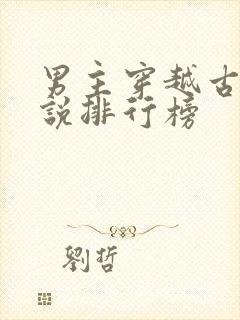 男主穿越古
說排行榜
劉哲